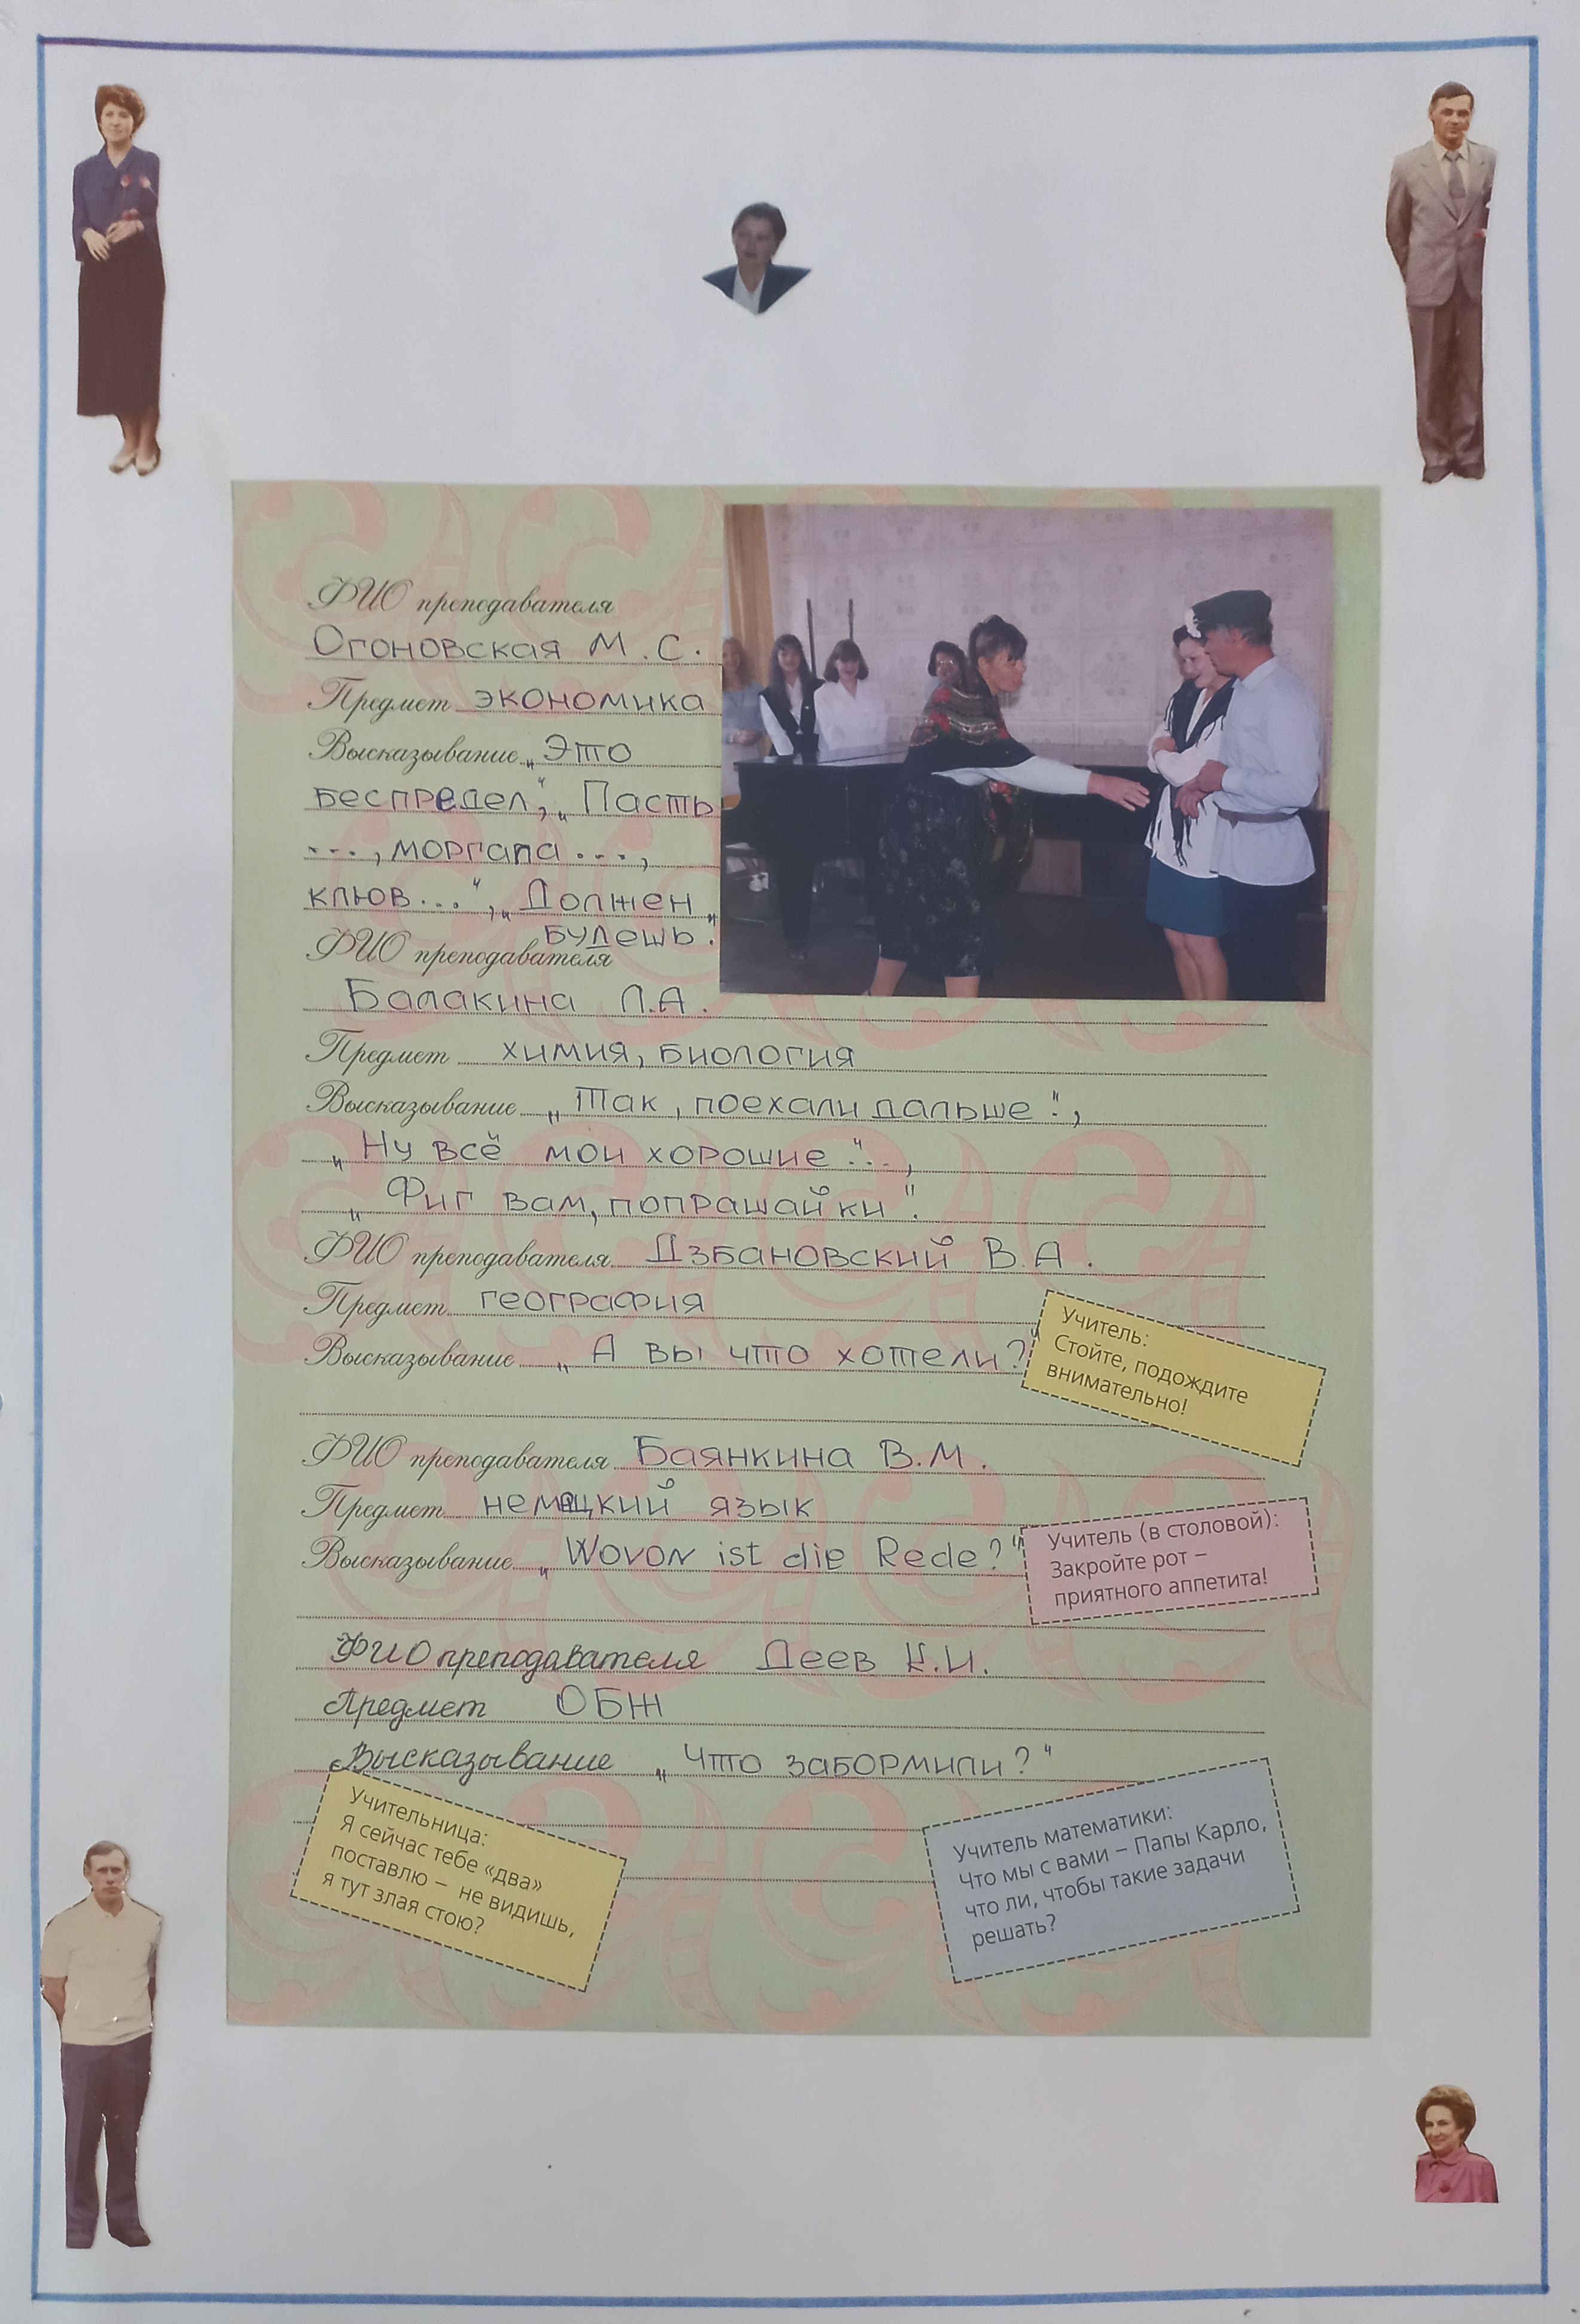 ФИО преподавателя
Огоновская М.С.
Предмет экономика
Высказывание „Это
беспредел“, „Пасть
..., моргала...,
клюв...“, „Должен
будешь“.
ФИО преподавателя
Балакина Л.А.
Предмет химия, биология
Высказывание „Так, поехали дальше“.,
„Ну всё мои хорошие“...,
„Фиг вам, попрашайки“.
ФИО преподавателя Дзбановский В.А.
Предмет география
Высказывание „А вы что хотели?“
Учитель:
Стойте, подождите
внимательно!
ФИО преподавателя Баянкина В.М.
Предмет немецкий язык
Высказывание „Wovon ist die Rede?“
Учитель (в столовой):
Закройте рот –
приятного аппетита!
ФИО преподавателя Деев К.И.
Предмет ОБЖ
Высказывание „Что забормили?“
Учительница:
Я сейчас тебе «два»
поставлю – не видишь,
я тут злая стою?
Учитель математики:
Что мы с вами – Папы Карло,
что ли, чтобы такие задачи
решать?